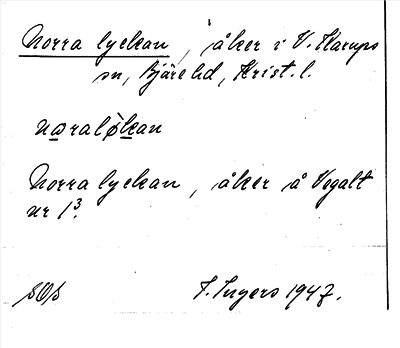 Norra lyckan, åker i V. Karups
sn, Bjäre hd, Krist. l.
noralökan
Norra lyckan, åker å Vegalt
nr 1³.
I. Ingers 1947.